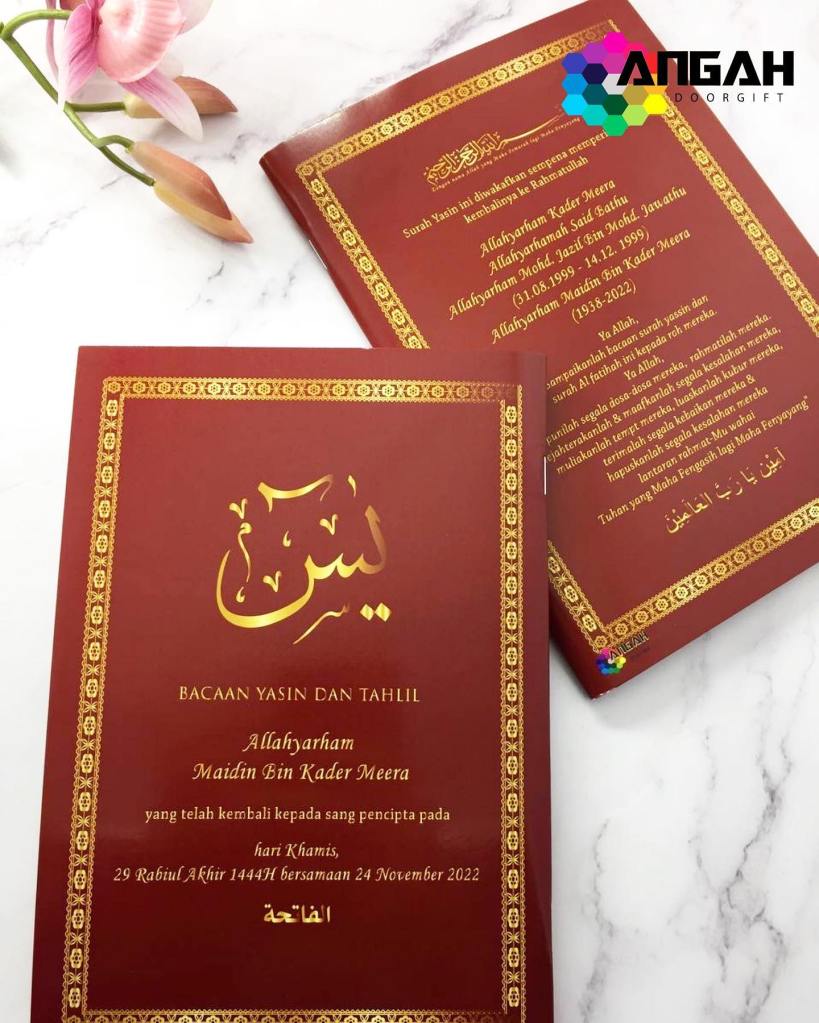 ANGAH
DOORGIFT
Dengan nama Allah yang Maha Pemurah lagi Maha Penyayang
Surah Yasin ini diwakafkan sempena memperi
kembalinya ke Rahmatullah
Allahyarham Kader Meera
Allahyarhamah Said Bathu
Allahyarham Mohd. Jazil Bin Mohd. Jawathu
(31.08.1999 - 14.12. 1999)
Allahyarham Maidin Bin Kader Meera
(1938-2022)
Ya Allah,
sampaikanlah bacaan surah yassin dan
surah Al fatihah ini kepada roh mereka.
Ya Allah,
punilah segala dosa-dosa mereka, rahmatilah mereka.
ejahterakanlah & maafkanlah segala kesalahan mereka,
muliakanlah tempt mereka, luaskanlah kubur mereka,
terimalah segala kebaikan mereka &
hapuskanlah segala kesalahan mereka
lantaran rahmat-Mu wahai
Tuhan yang Maha Fengasih lagi Maha Fenyayang"
آمِيْن يَا رَبَّ الْعَالَمِيْنَ
ANGAH
يس
BACAAN YASIN DAN TAHLIL
Allahyarham
Maidin Bin Kader Meera
yang telah kembali kepada sang pencipta pada
hari Khamis,
29 Rabiul Akhir 1444H bersamaan 24 November 2022
الفاتحة